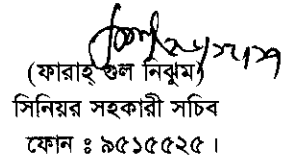 (ফারাহ্ গুল নিঝুম)
সিনিয়র সহকারী সচিব
ফোন ঃ ৯৫১৫৫২৫ ।